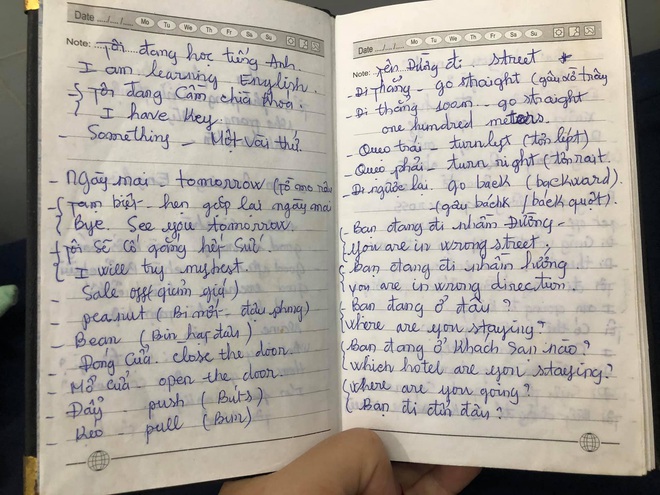 Date ..../..../.... Mo Tu We Th Fr Sa Su
Note: Tôi đang học tiếng Anh
I am learning English.
Tôi đang Cầm chìa khoá.
I have key.
- Something - Một vài thứ
- Ngày mai - tomorrow (
- Tạm biệt - hẹn gặp lại ngày mai
Bye. See you tomorrow.
- Tôi Sẽ Cố gắng hết Sức.
I will try my best.
- Sale off (giảm giá)
- peanut (Bi nớt - đậu phụng)
- Bean (Bin hạt đậu)
- Đóng Cửa. close the door.
- Mở cửa - open the door
- Đẩy - push (Bút s)
- Kéo - pull (Bun)
Date ..../..../.... Mo Tu We Th Fr Sa Su
Note: Tên Đường đi. street
- Đi Thẳng - go straight (
- Đi thẳng 100m - go straight
one hundred meters.
- Quẹo trái - turn left (tơn lépt)
- Quẹo phải - turn right (tơn
- Đi ngược lại. go back (backward).
(gâu bách / back quợt).
- Bạn đang đi nhầm Đường -
you are in wrong street.
- Bạn đang đi nhầm hướng
you are in wrong direction.
- Bạn đang ở đâu?
where are you staying?
Bạn đang ở Khách Sạn nào?
which hotel are you staying?
where are you going?
Bạn đi đến đâu?